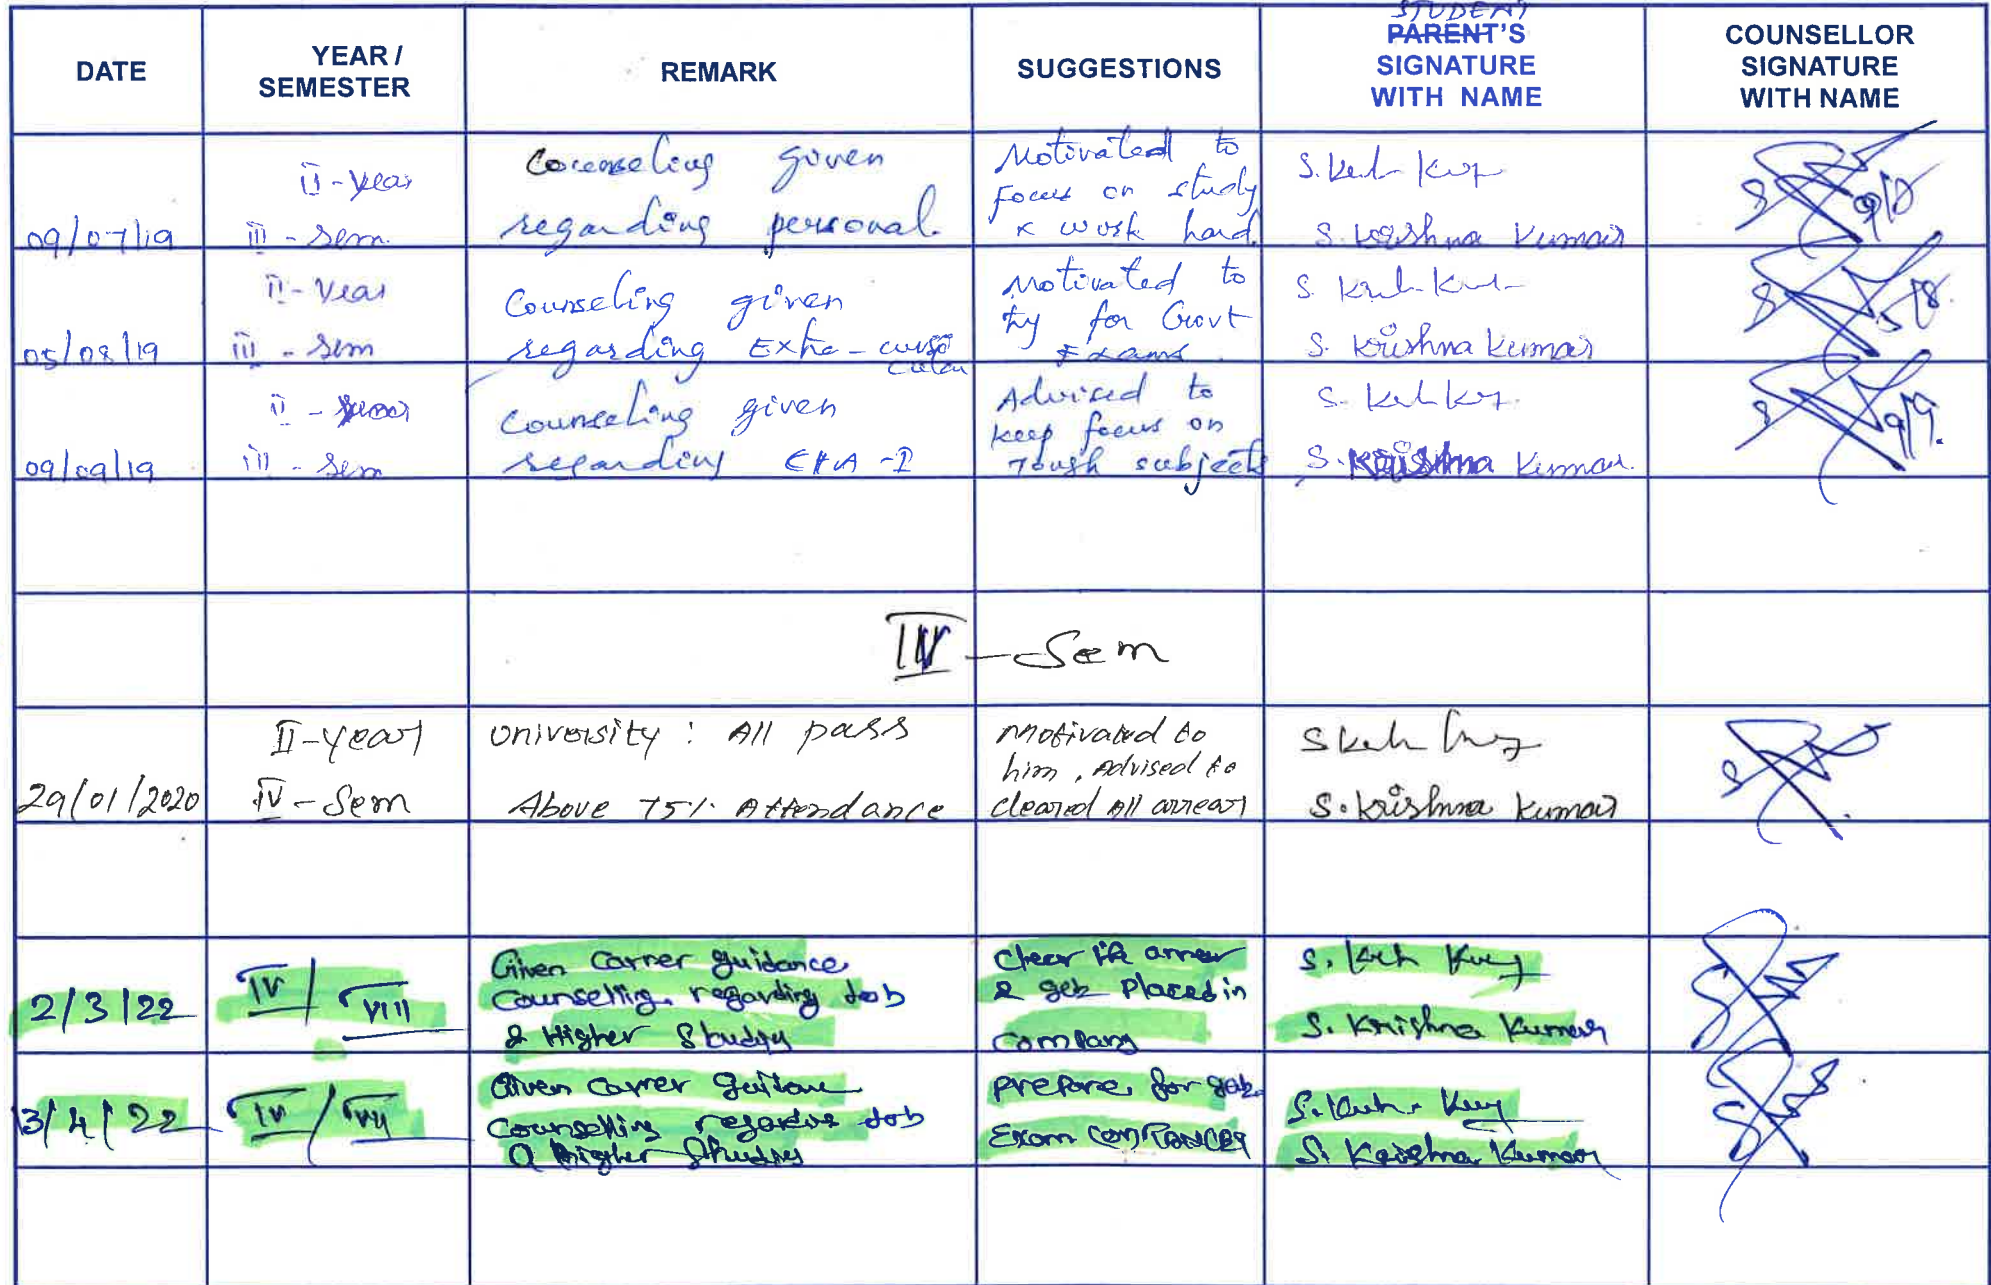 DATE
YEAR /
SEMESTER
REMARK
SUGGESTIONS
STUDENT
PARENT'S
SIGNATURE
WITH NAME
COUNSELLOR
SIGNATURE
WITH NAME
09/07/19
II - Year
III - Sem.
Counseling given
regarding personal.
Motivated to
Focus on study
& work hard.
S. Krishna Kumar
9/7
05/08/19
II - Year
III - Sem
Counseling given
regarding Extra-
Motivated to
try for Govt
Exams
S. Krishna Kumar
5/8.
09/09/19
II - year
III - Sem
Counseling given
regarding
Advised to
keep focus on
Tough subjects
S. Krishna Kumar.
9/9.
IV - Sem
29/01/2020
II - year
IV - Sem
University : All pass
Above 75% Attendance
Motivated to
him, Advised to
cleared All arrear
S. Krishna Kumar
2/3/22
IV / VIII
Given Carrer guidance
Counselling regarding Job
& Higher Study
Clear the arrear
& get Placed in
Company
S. Krishna Kumar
3/4/22
IV / VII
Given Carrer
Counselling Job
Higher
prepare for
Exam
S. Krishna Kumar